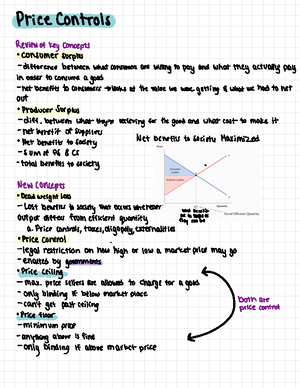 Price Controls
Review of Key Concepts
• Consumer Surplus
- difference between what consumers are willing to pay and what they actually pay
in order to consume a good
- net benefits to consumers → looks at the value we were getting & what we had to net
out
• Producer Surplus
- diff. between what they're recieving for the good and what cost to make it
- net benefit of suppliers
• Net benefits to society
- sum of PS & CS
- total benefits to society
Net benefits to Society Maximized
Price
Consumer Surplus
Producer Surplus
Social Efficient Quantity
New Concepts
• Dead weight loss
- Lost benefits to society that occurs whenever
output differ from efficient quantity
a. Price controls, taxes, oligopoly, externalities
• Price control
- legal restriction on how high or low a market price may go
- enacted by governments
• Price ceiling
- max. price sellers are allowed to charge for a good
- only binding if below market place
- can't get past ceiling
• Price floor
- minimum price
- anything above is fine
- only binding if above market price
both are
price control